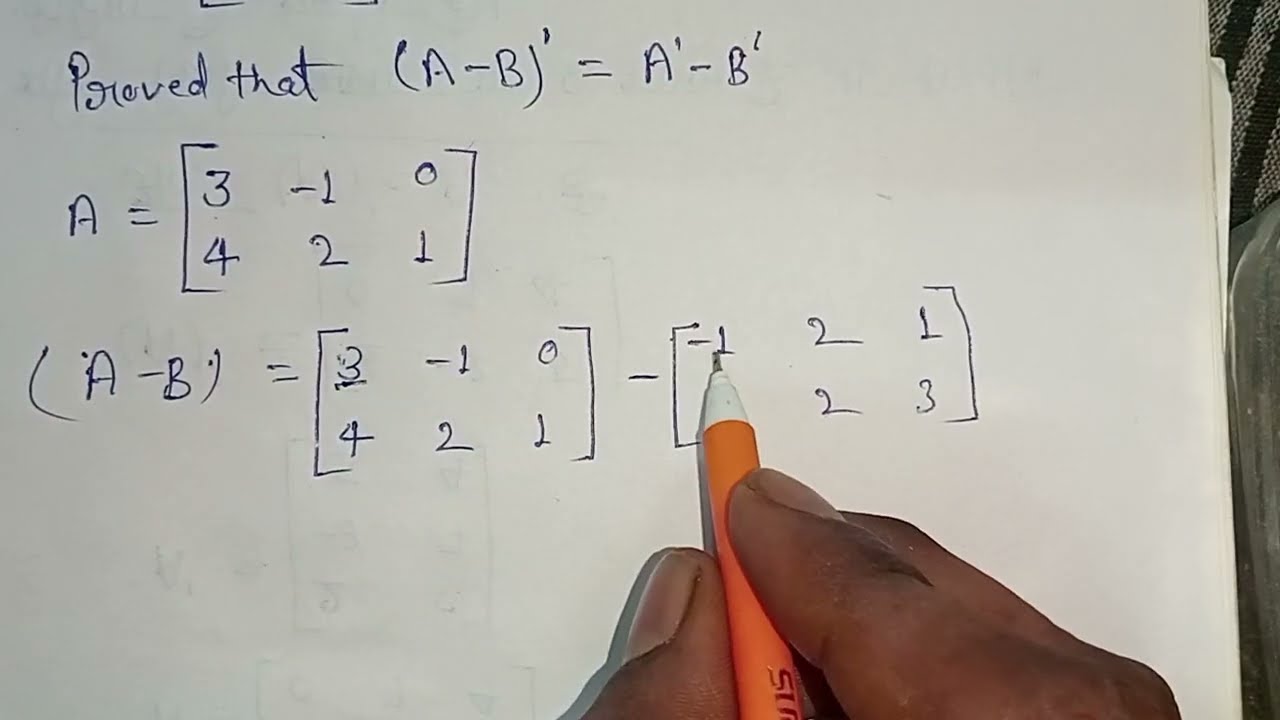 Proved that (A-B)' = A'-B'
A = [3 -1 0
4 2 1]
(A-B) = [3 -1 0 - [-1 2 1
4 2 1] 2 3]